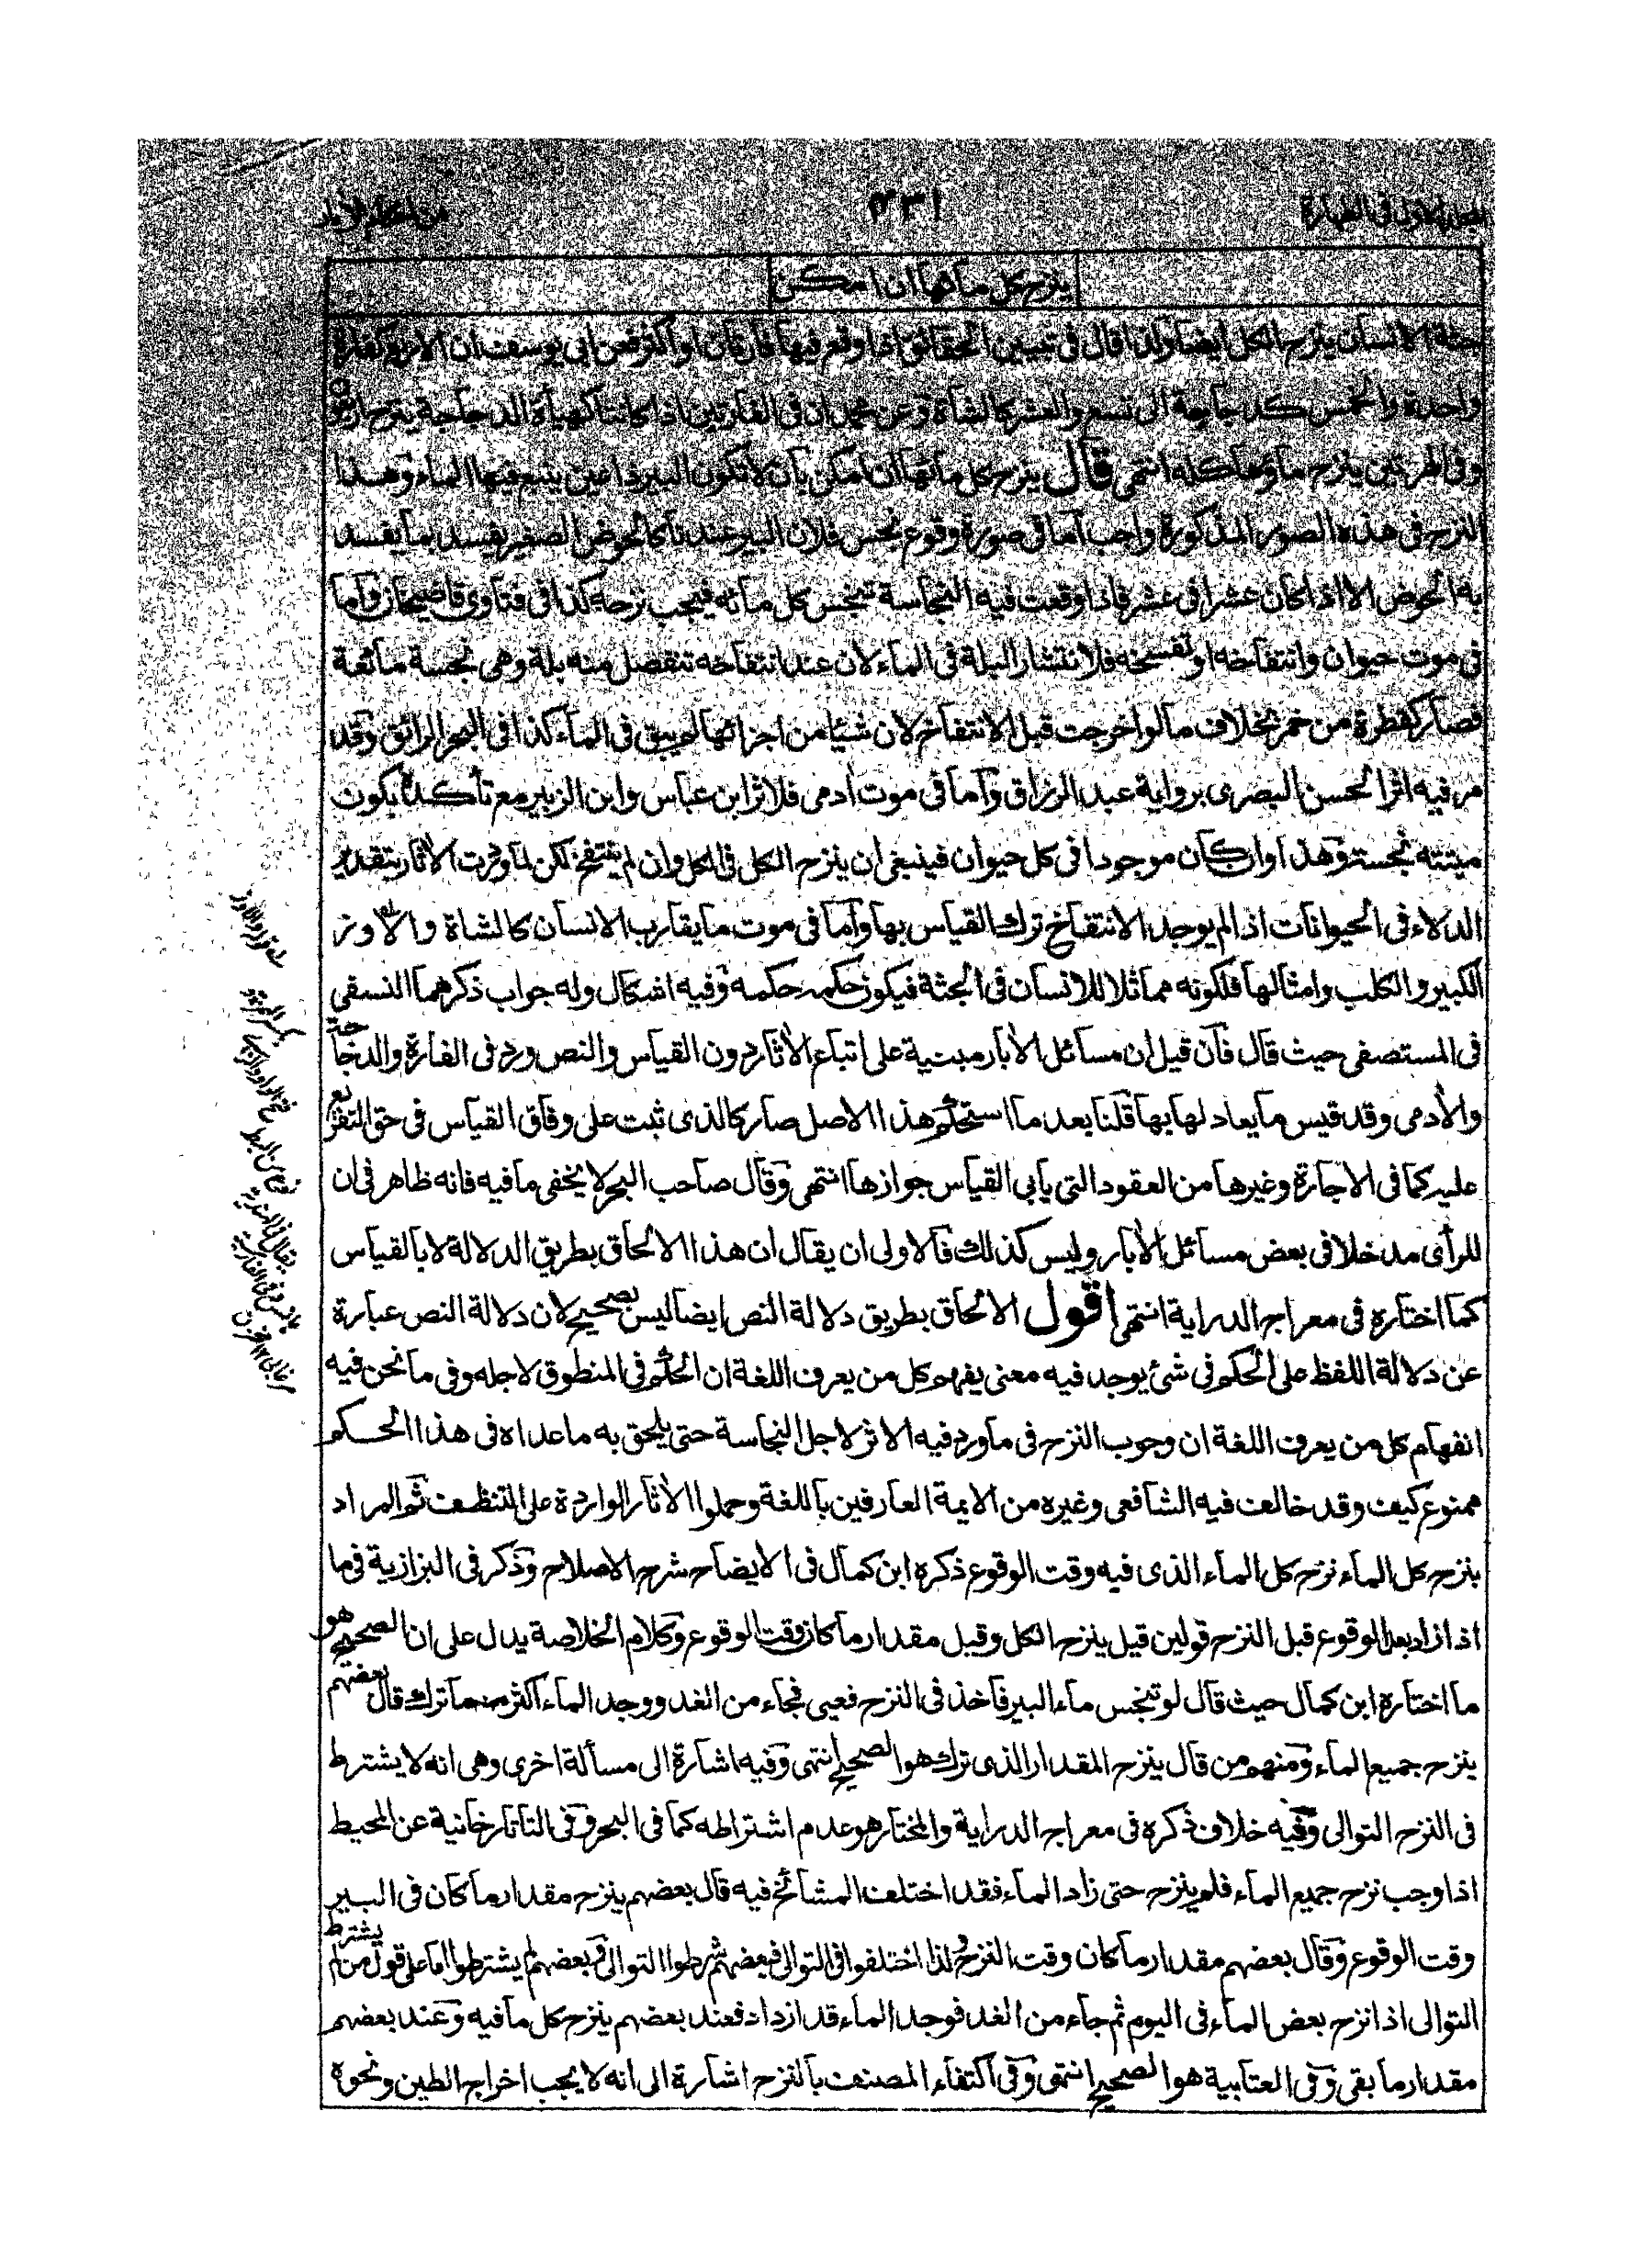 المجلد الاول فى الطهارة
٤٣١
من احكام الأبار
ينزح كل مائها ان امكن
جثة الانسان ينزح الكل ايضا ولذا قال فى تبيين الحقائق اذا وقع فيها فارتان او اكثر فعن ابى يوسف ان الاربع كفارة
واحدة والخمس كدجاجة الى تسع والعشر كالشاة وعن محمد ان فى الفارتين اذا كانتا كهيأة الدجاجة ينزح اربعون
وفى الهرتين ينزح ماؤها كله انتهى قال ينزح كل مائها ان امكن بان لا تكون البير ذا عين ينبع فيها الماء وهذا
النزح فى هذه الصور المذكورة واجب اما فى صورة وقوع نجس فلان البير عندنا كالحوض الصغير يفسد بما يفسد
به الحوض الا اذا كان عشرا فى عشر فاذا وقعت فيه النجاسة تنجس كل مائه فيجب نزحه كذا فى فتاوى قاضيخان واما
فى موت حيوان وانتفاخه او تفسخه فلانتشار البلة فى الماء لان عند انتفاخه تنفصل منه بلة وهى نجسة مائعة
فصار كقطرة من خمر بخلاف ما لو اخرجت قبل الانتفاخ لان شيئا من اجزائها لم يبق فى الماء كذا فى البحر الرائق وقد
مر فيه اثر الحسن البصرى برواية عبد الرزاق واما فى موت أدمى فلاثر ابن عباس وابن الزبير مع تأكده بكون
ميتته نجسة وهذا وان كان موجودا فى كل حيوان فينبغى ان ينزح الكل فى الكل وان لم ينتفخ لكن لما وردت الأثار بتقدير
الدلاء فى الحيوانات اذا لم يوجد الانتفاخ ترك القياس بها واما فى موت ما يقارب الانسان كالشاة والاوز
الكبير والكلب وامثالها فلكونه مماثلا للانسان فى الجثة فيكون حكمه حكمه وفيه اشكال وله جواب ذكرهما النسفى
فى المستصفى حيث قال فان قيل ان مسائل الأبار مبنية على اتباع الأثار دون القياس والنص ورد فى الفارة والدجاجة
والأدمى وقد قيس ما يعادلها بها قلنا بعد ما استحكم هذا الاصل صار كالذى ثبت على وفاق القياس فى حق التفريع
عليه كما فى الاجارة وغيرها من العقود التى يأبى القياس جوازها انتهى وقال صاحب البحر لا يخفى ما فيه فانه ظاهر فى ان
للرأى مدخلا فى بعض مسائل الأبار وليس كذلك فالاولى ان يقال ان هذا الالحاق بطريق الدلالة لا بالقياس
كما اختاره فى معراج الدراية انتهى اقول الالحاق بطريق دلالة النص ايضا ليس بصحيح لان دلالة النص عبارة
عن دلالة اللفظ على الحكم فى شئ يوجد فيه معنى يفهم كل من يعرف اللغة ان الحكم فى المنطوق لاجله وفى ما نحن فيه
انفهام كل من يعرف اللغة ان وجوب النزح فى ما ورد فيه الاثر لاجل النجاسة حتى يلحق به ما عداه فى هذا الحكم
ممنوع كيف وقد خالف فيه الشافعى وغيره من الايمة العارفين باللغة وحملوا الأثار الواردة على التنظيف ثم المراد
بنزح كل الماء نزح كل الماء الذى فيه وقت الوقوع ذكره ابن كمال فى الايضاح شرح الاصلاح وذكر فى البزازية فى ما
اذا زاد بعد الوقوع قبل النزح قولين قيل ينزح الكل وقيل مقدار ما كان وقت الوقوع وكلام الخلاصة يدل على ان الصحيح هو
ما اختاره ابن كمال حيث قال لو تنجس ماء البير فاخذ فى النزح فعيى فجاء من الغد ووجد الماء اكثر مما ترك قال بعضهم
ينزح جميع الماء ومنهم من قال ينزح المقدار الذى ترك هو الصحيح انتهى وفيه اشارة الى مسألة اخرى وهى انه لا يشترط
فى النزح التوالى وفيه خلاف ذكره فى معراج الدراية والمختار هو عدم اشتراطه كما فى البحر وفى التاتارخانية عن المحيط
اذا وجب نزح جميع الماء فلم ينزح حتى زاد الماء فقد اختلف المشائخ فيه قال بعضهم ينزح مقدار ما كان فى البير
وقت الوقوع وقال بعضهم مقدار ما كان وقت النزح ولذا اختلفوا فى التوالى فبعضهم شرطوا التوالى وبعضهم لم يشترطوا اما على قول من لم يشترط
التوالى اذا نزح بعض الماء فى اليوم ثم جاء من الغد فوجد الماء قد ازداد فعند بعضهم ينزح كل ما فيه وعند بعضهم
مقدار ما بقى وفى العتابية هو الصحيح انتهى وفى اكتفاء المصنف بالنزح اشارة الى انه لا يجب اخراج الطين ونحوه